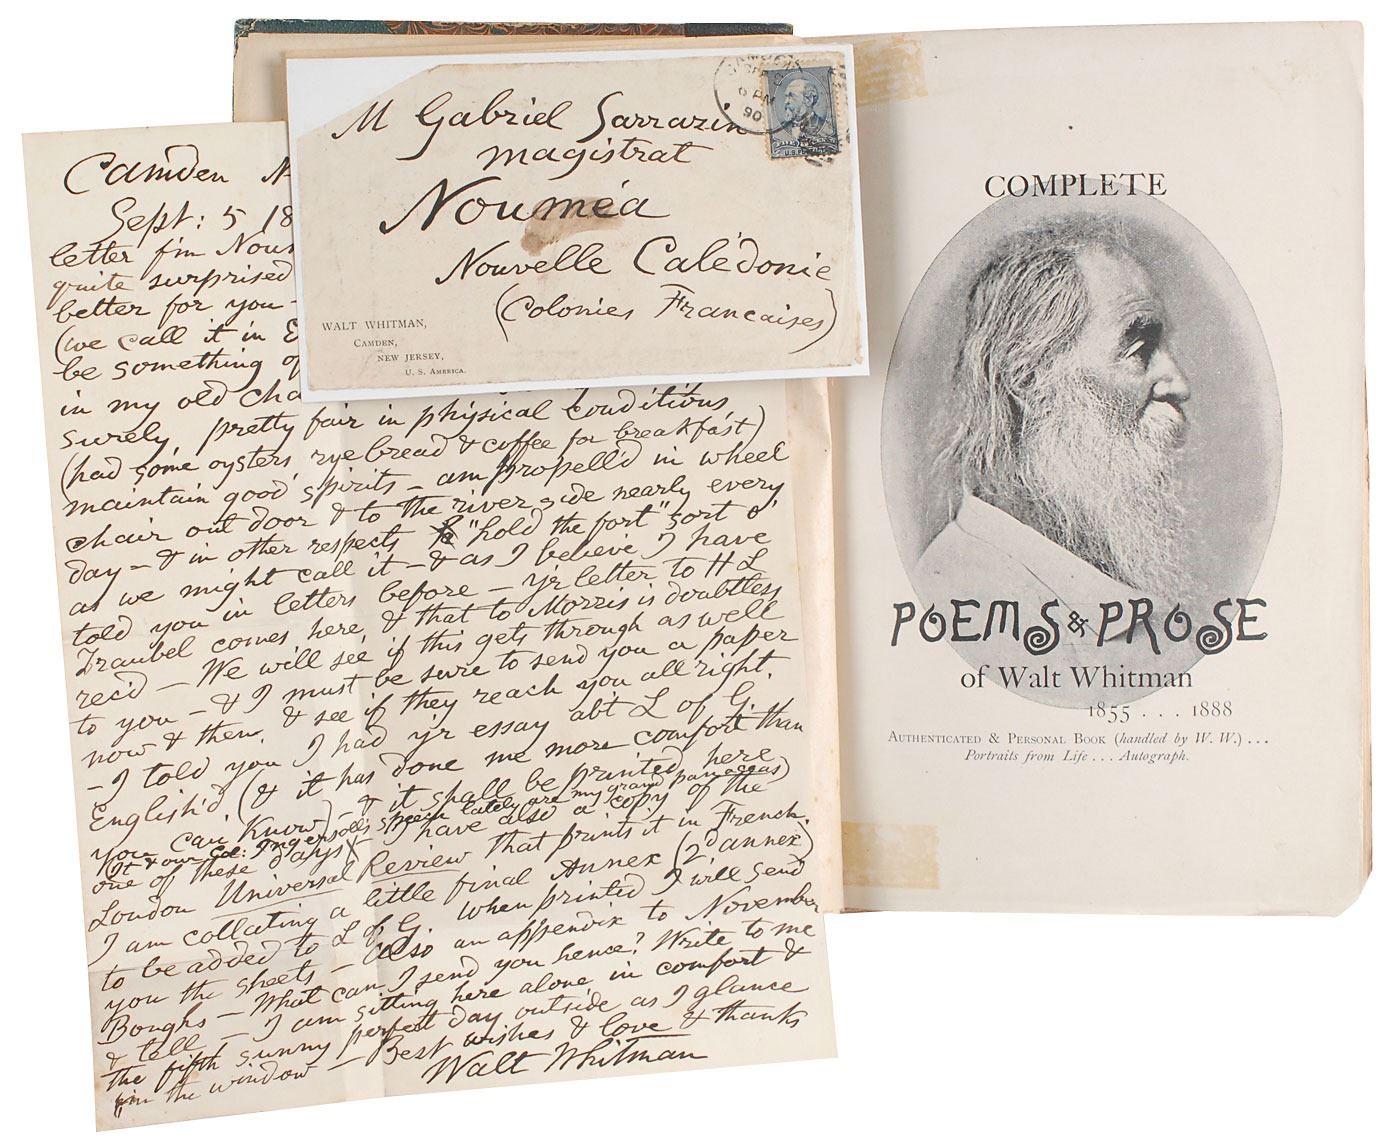 Camden N
Sept: 5 18
letter f'm Nou
quite surprised
better for you –
(we call it in E
be something of
in my old cha
surely pretty fair in physical conditions
(had some oysters, rye bread & coffee for breakfast)
maintain good spirits – am propell'd in wheel
chair out door & to the river side nearly every
day – & in other respects "hold the fort" sort o'
as we might call it – & as I believe I have
told you in letters before – y'r letter to H L
Traubel comes here, & that to Morris is doubtless
rec'd – We will see if this gets through as well
to you – & I must be sure to send you a paper
now & then, & see if they reach you all right.
– I told you I had y'r essay ab't L of G.
English'd (& it has done me more comfort than
you can know) – & it shall be printed here
(it & our Col: Ingersoll's speech lately are my grand panaceas)
one of these days & I have also a copy of the
London Universal Review that prints it in French.
I am collating a little final Annex (2d annex)
to be added to L of G. when printed I will send
you the sheets – also an appendix to November
Boughs – What can I send you hence? Write to me
& tell – I am sitting here alone in comfort &
the fifth sunny perfect day outside as I glance
in the window – Best wishes & love & thanks
Walt Whitman
M Gabriel Sarrazin
magistrat
Nouméa
Nouvelle Calédonie
(Colonies Francaises)
WALT WHITMAN,
CAMDEN,
NEW JERSEY,
U. S. AMERICA.
CAMDEN
6 PM
90
COMPLETE
POEMS & PROSE
of Walt Whitman
1855 . . . 1888
AUTHENTICATED & PERSONAL BOOK (handled by W. W.) . . .
Portraits from Life . . . Autograph.